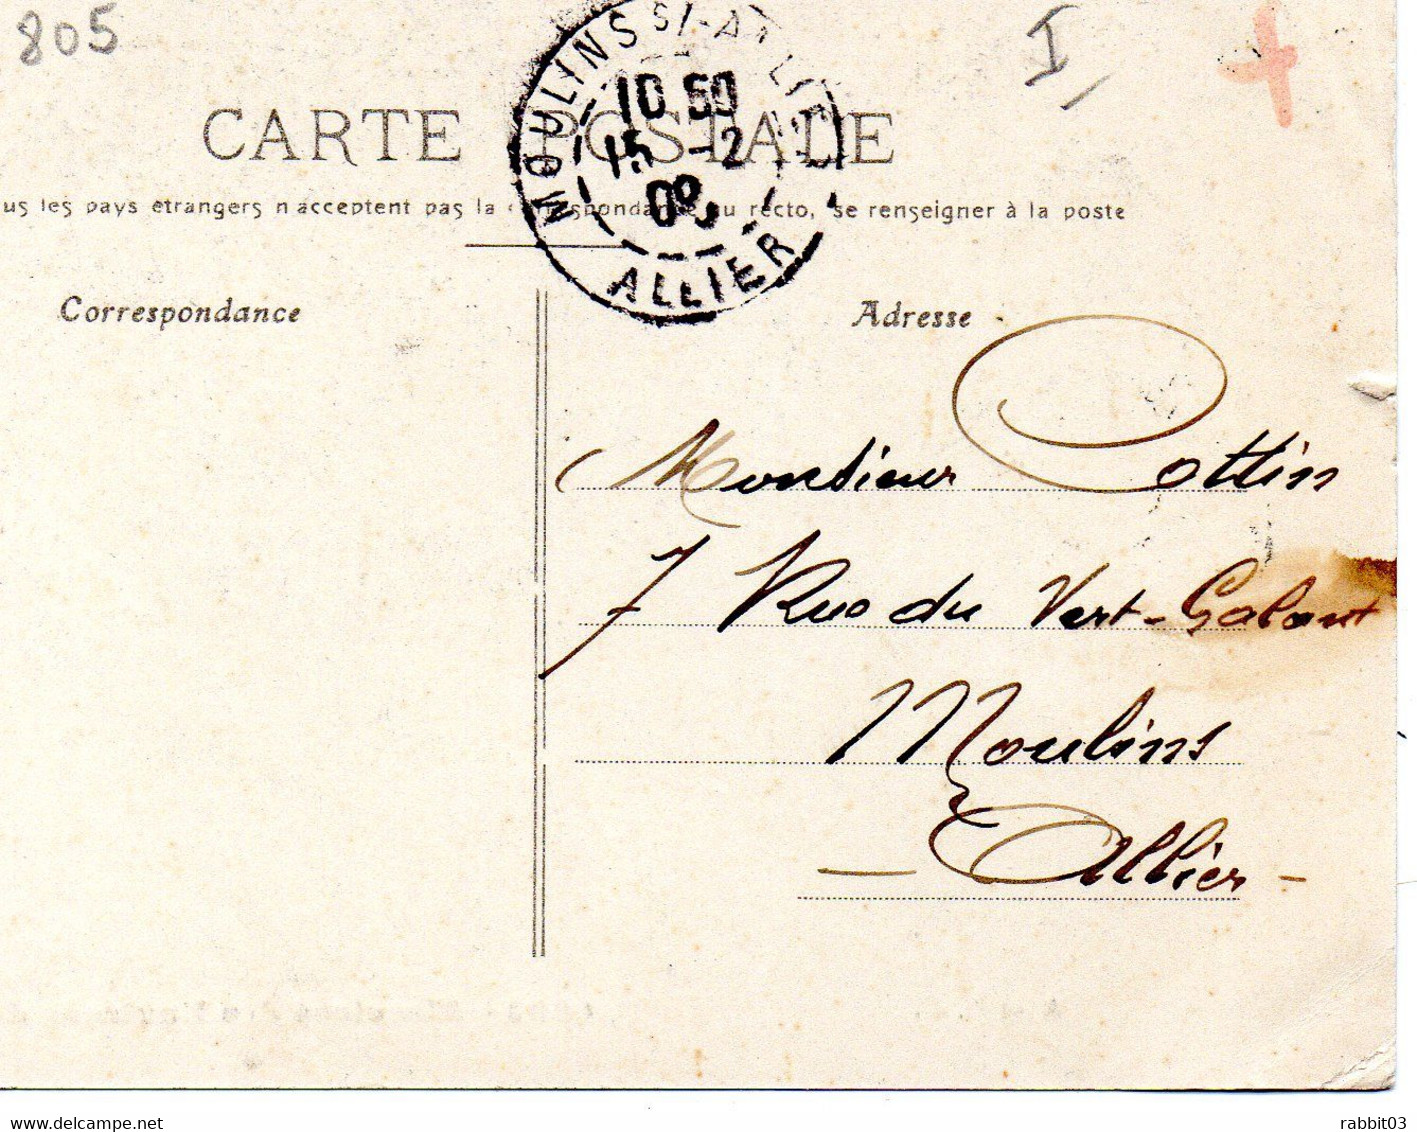 805
I
MOULINS S/-ALLIER
10 50
15 -2
09
ALLIER
CARTE POSTALE
us les pays étrangers n'acceptent pas la correspondance au recto, se renseigner à la poste
Correspondance
Adresse
Monsieur Cottin
7 Rue du Vert-Galant
Moulins
- Allier -
www.delcampe.net
rabbit03